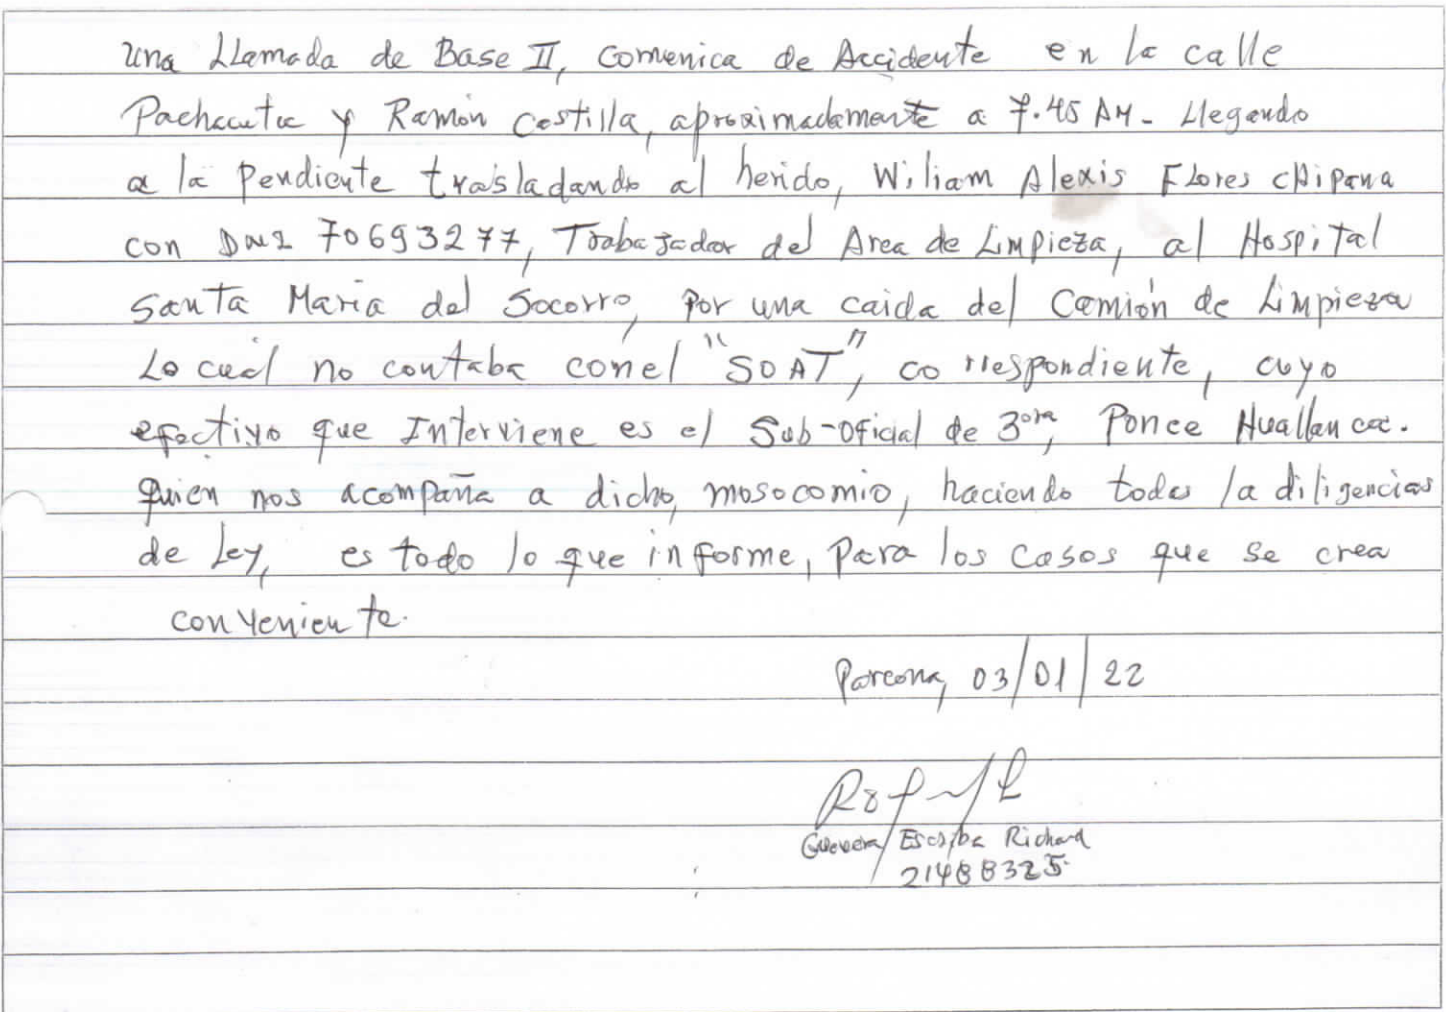 una Llamada de Base II, Comenica de Accidente en la calle
Pachacuta y Ramón Castilla, aproximadamente a 7.45 AM- Llegando
a la pendiente trasladando al herido, Wiliam Alexis Flores cHipana
con DNI 70693277, Trabajador del Area de Limpieza, al Hospital
Santa Maria del Socorro, por una caida del Camión de Limpieza
Lo cual no contaba conel "SOAT", correspondiente, cuyo
efectivo que Interviene es el Sub-Oficial de 3ora, Ponce Huallanca.
quien nos acompaña a dicho, mosocomio, haciendo todas la diligencias
de Ley, es todo lo que informe, para los casos que se crea
conveniente.
Parcona, 03/01/22
Guevara Escriba Richard
21488325.